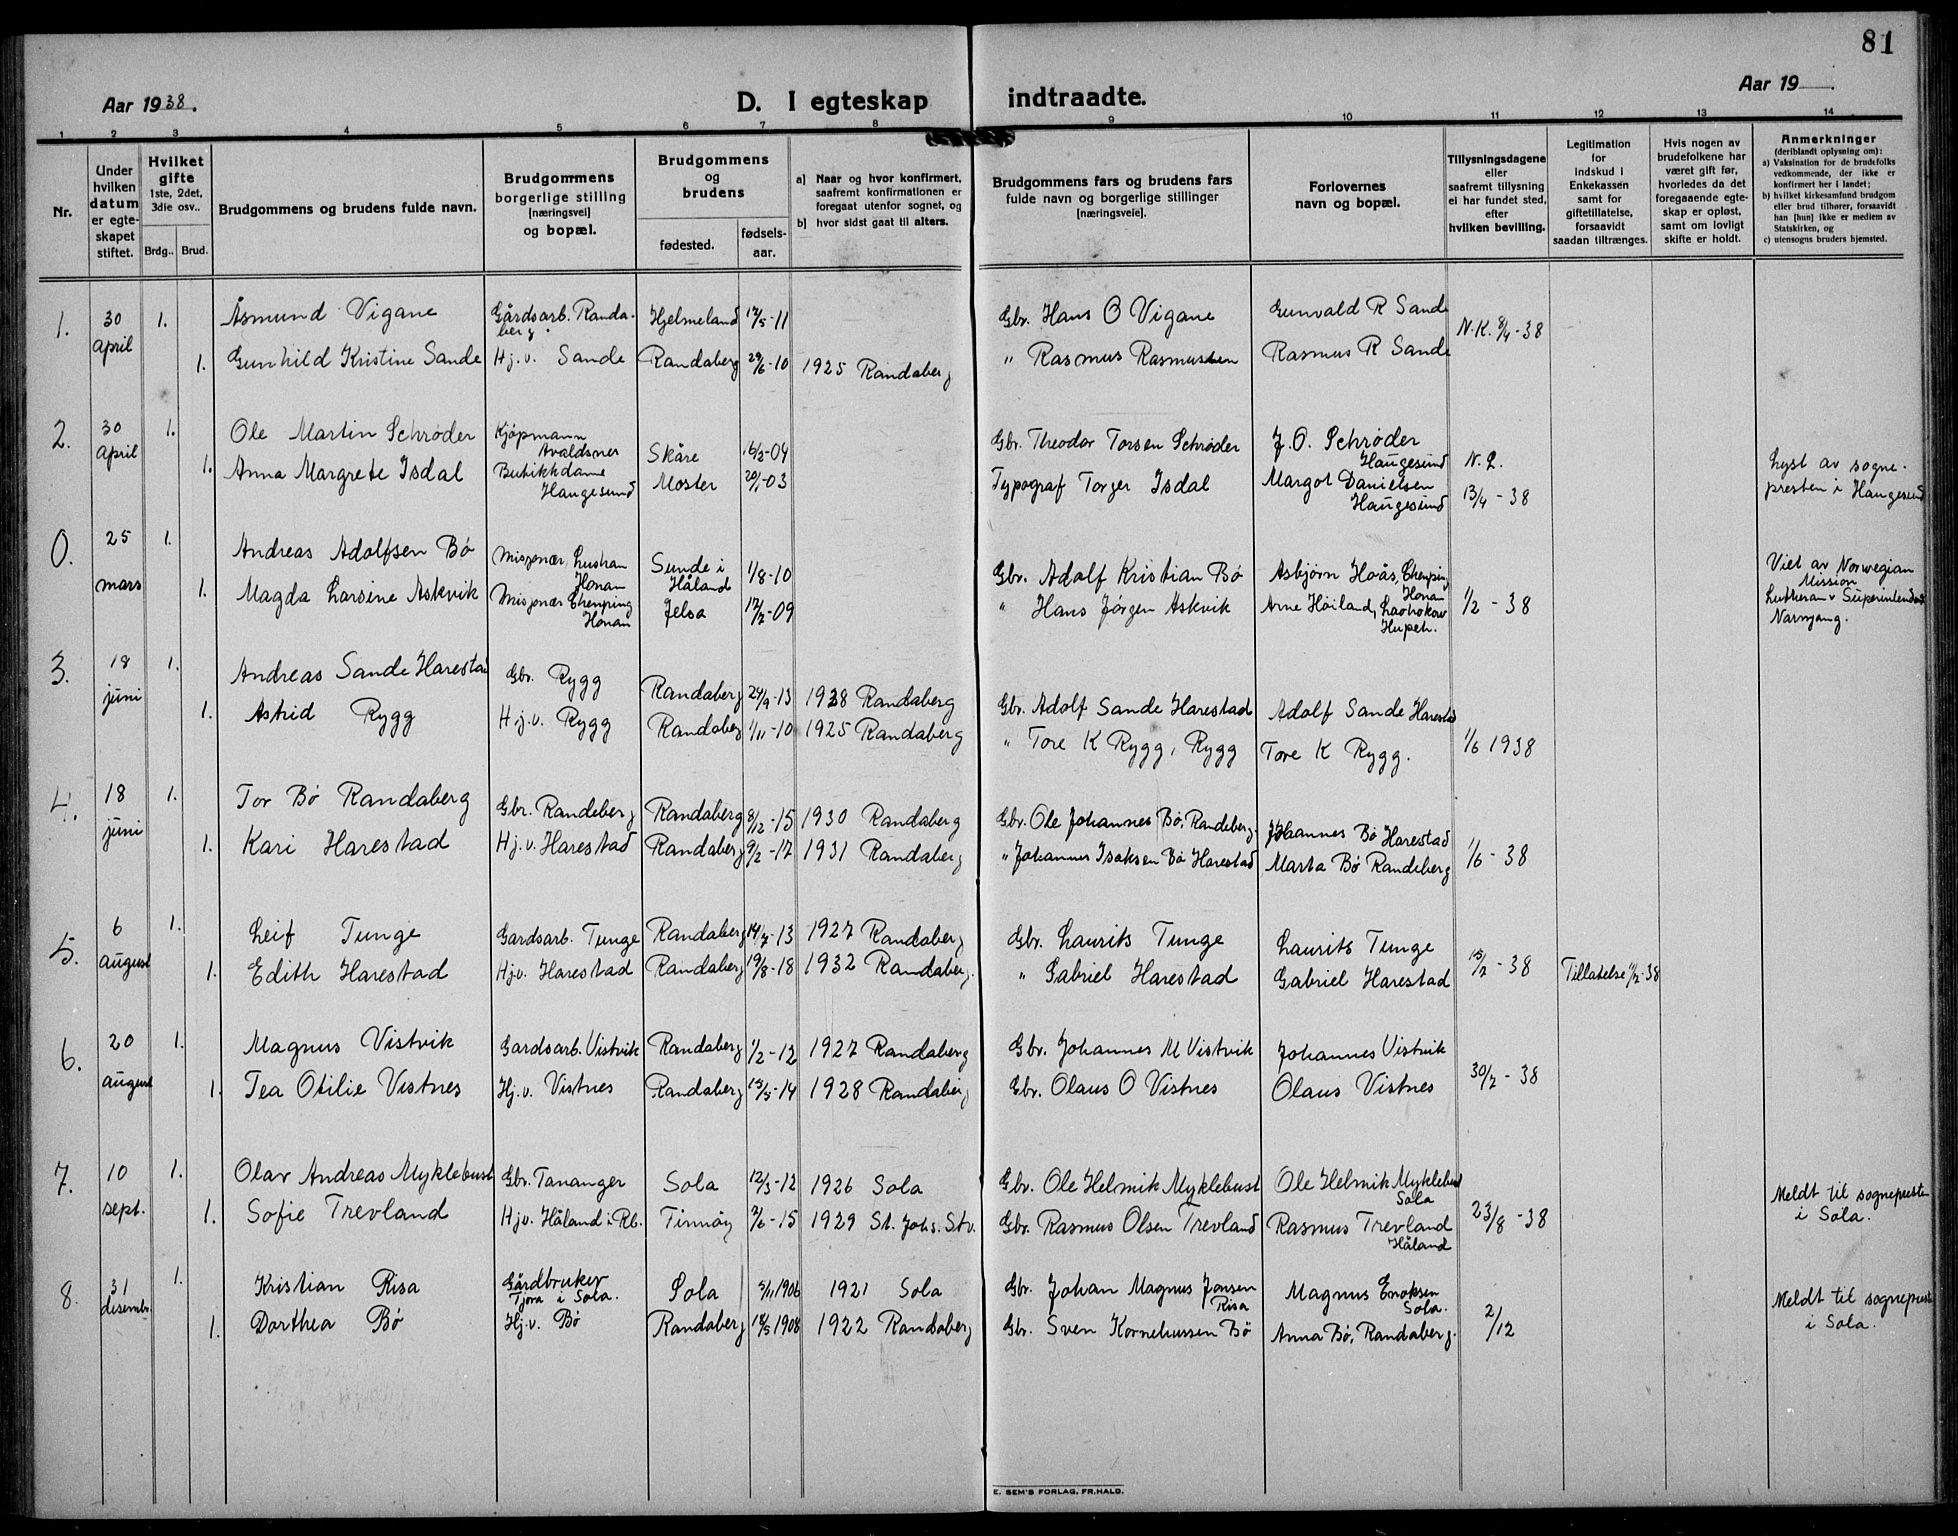 81
Aar 1938.
D. I egteskap indtraadte.
Aar 19
1 2 3 4 5 6 7 8 9 10 11 12 13 14
Nr.
Under hvilken datum er egte-skapet stiftet.
Hvilket gifte 1ste, 2det, 3die osv..
Brdg.. Brud.
Brudgommens og brudens fulde navn.
Brudgommens borgerlige stilling [næringsvei] og bopæl.
Brudgommens og brudens
fødested.
fødsels-aar.
a) Naar og hvor konfirmert, saafremt konfirmationen er foregaat utenfor sognet, og
b) hvor sidst gaat til alters.
Brudgommens fars og brudens fars fulde navn og borgerlige stillinger [næringsveie].
Forlovernes navn og bopæl.
Tillysningsdagene eller saafremt tillysning ei har fundet sted, efter hvilken bevilling.
Legitimation for indskud i Enkekassen samt for giftetillatelse, forsaavidt saadan tiltrænges.
Hvis nogen av brudefolkene har været gift før, hvorledes da det foregaaende egte-skap er opløst, samt om lovligt skifte er holdt.
Anmerkninger
(deriblandt oplysning om):
a) Vaksination for de brudefolks vedkommende, der ikke er konfirmert her i landet;
b) hvilket kirkesamfund brudgom eller brud tilhører, forsaavidt han [hun] ikke er medlem av Statskirken, og
c) utensogns bruders hjemsted.
1. 30 april 1. Åsmund Vigane Gårdsarb. Randa-berg. Hjelmeland 17/5-11 Gbr. Hans O Vigane Gunvald R Sande N.K. 8/4-38
1. Gunhild Kristine Sande Hj.v. Sande Randaberg 29/6-10 1925 Randaberg " Rasmus Rasmussen Rasmus R Sande
2. 30 april 1. Ole Martin Schrøder Kjøpmann Avaldsnes Skåre 16/3-04 Gbr. Theodor Torsen Schrøder J. O. Schrøder Haugesund N.L.
1. Anna Margrete Isdal Butikkdame Haugesund Moster 20/1-03 Typograf Torger Isdal Margot Danielsen Haugesund 13/4-38 Lyst av sogne-presten i Haugesund
0. 25 mars 1. Andreas Adolfsen Bø Misjonær Lushan Honan Sunde i Håland 1/8-10 Gbr. Adolf Kristian Bø Asbjørn Hoås, Chenping Honan
1. Magda Larsine Askvik Misjonær Chenping Honan Jelsa 17/2-09 " Hans Jørgen Askvik Arne Høiland, Laohokow Hupeh. 1/2-38 Viet av Norwegian Lutheran Mission Superintendent
3. 18 juni 1. Andreas Sande Harestad Gbr. Rygg Randaberg 24/9-13 1928 Randaberg Gbr. Adolf Sande Harestad Adolf Sande Harestad
1. Astrid Rygg Hj.v. Rygg Randaberg 1/11-10 1925 Randaberg " Tore K Rygg, Rygg Tore K Rygg. 1/6 1938
4. 18 juni 1. Tor Bø Randaberg Gbr. Randeberg Randaberg 8/12-15 1930 Randaberg Gbr. Ole Johannes Bø, Randeberg. Johannes Bø Harestad
1. Kari Harestad Hj.v. Harestad Randaberg 9/2-17 1931 Randaberg " Johannes Isaksen Bø Harestad Marta Bø Randeberg 1/6-38
5. 6 august 1. Leif Tunge Gardsarb. Tunge Randaberg 14/7-13 1927 Randaberg Gbr. Laurits Tunge Laurits Tunge
1. Edith Harestad Hjv. Harestad Randaberg 19/8-18 1932 Randaberg. " Gabriel Harestad Gabriel Harestad 15/7-38 Tillatelse 11/7-38
6. 20 august 1. Magnus Vistvik Gardsarb. Vistvik Randaberg 1/2-12 1927 Randaberg Gbr. Johannes M Vistvik Johannes Vistvik
1. Tea Otilie Vistnes Hj.v. Vistnes Randaberg 15/5-14 1928 Randaberg Gbr. Olaus O Vistnes Olaus Vistnes 30/7-38
7. 10 sept. 1. Olav Andreas Myklebust Gbr. Tananger Sola 12/3-12 1926 Sola Gbr. Ole Helmik Myklebust Ole Helmik Myklebust Sola
1. Sofie Trevland Hjv. Håland i Rb. Finnøy 7/6-15 1929 St. Johs. Stv. Gbr. Rasmus Olsen Trevland Rasmus Trevland Håland 23/8-38 Meldt til sognepresten i Sola.
8. 31 desembr. 1. Kristian Risa Gårdbruker Tjora i Sola. Sola 5/11 1906 1921 Sola Gbr. Johan Magnus Jonsen Risa Magnus Enoksen Sola.
1. Dorthea Bø Hj.v. Bø Randaberg 18/5 1908 1922 Randaberg Gbr. Sven Korneliussen Bø Anna Bø, Randaberg. 2/12 Meldt til sogneprest i Sola.
E. SEM'S FORLAG, FR.HALD.